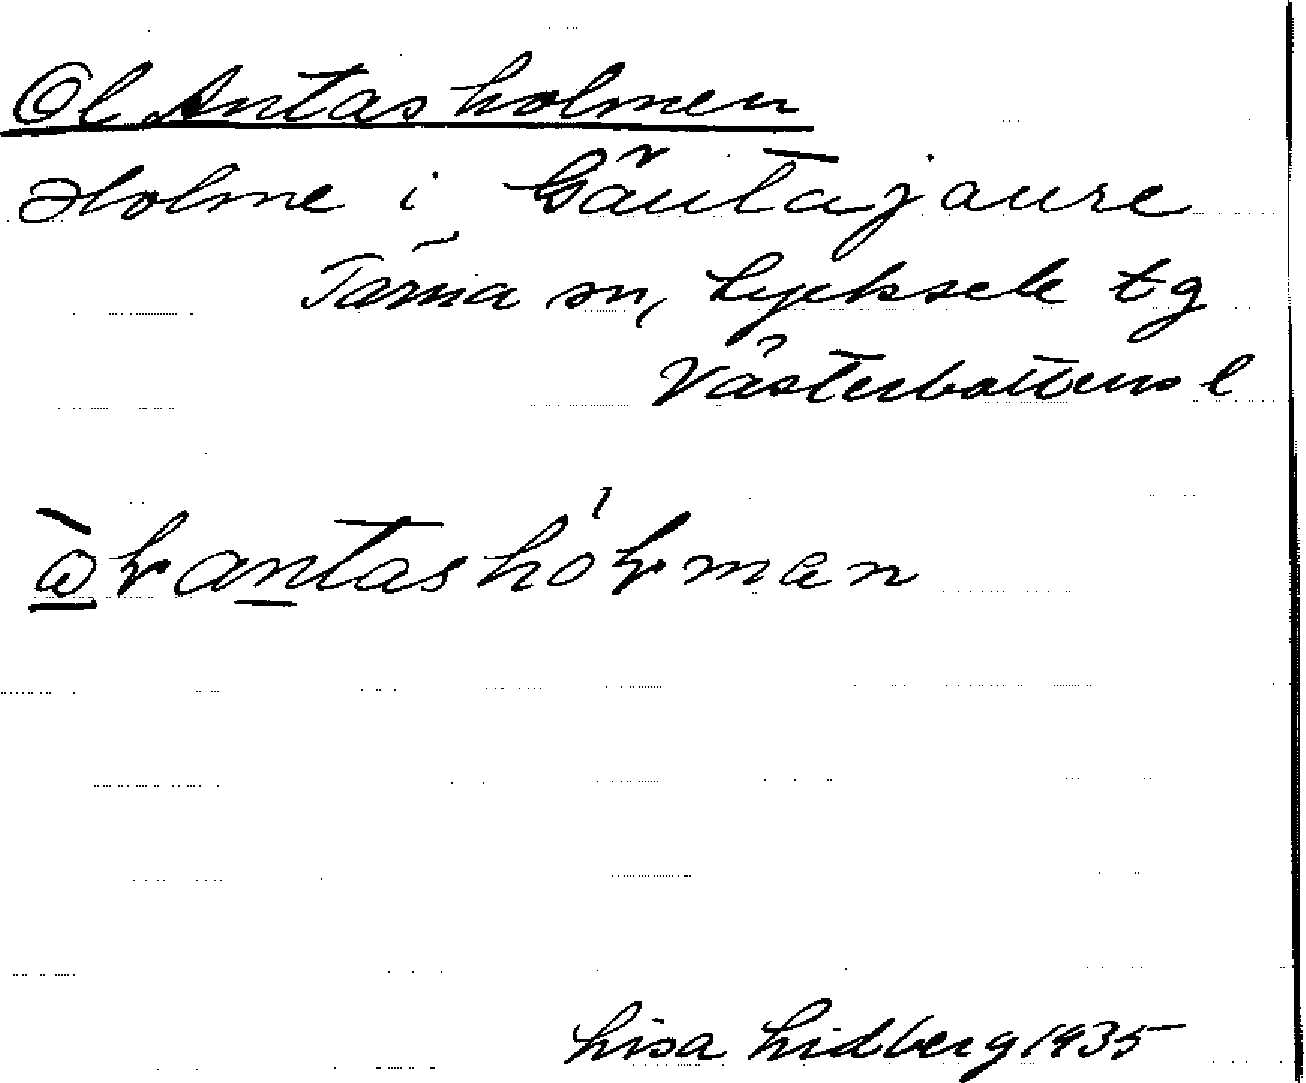 Ol Antasholmen
Holme i Gäutajaure
Tärna sn, Lycksele tg
Västerbottens l
Lisa Lidberg 1935